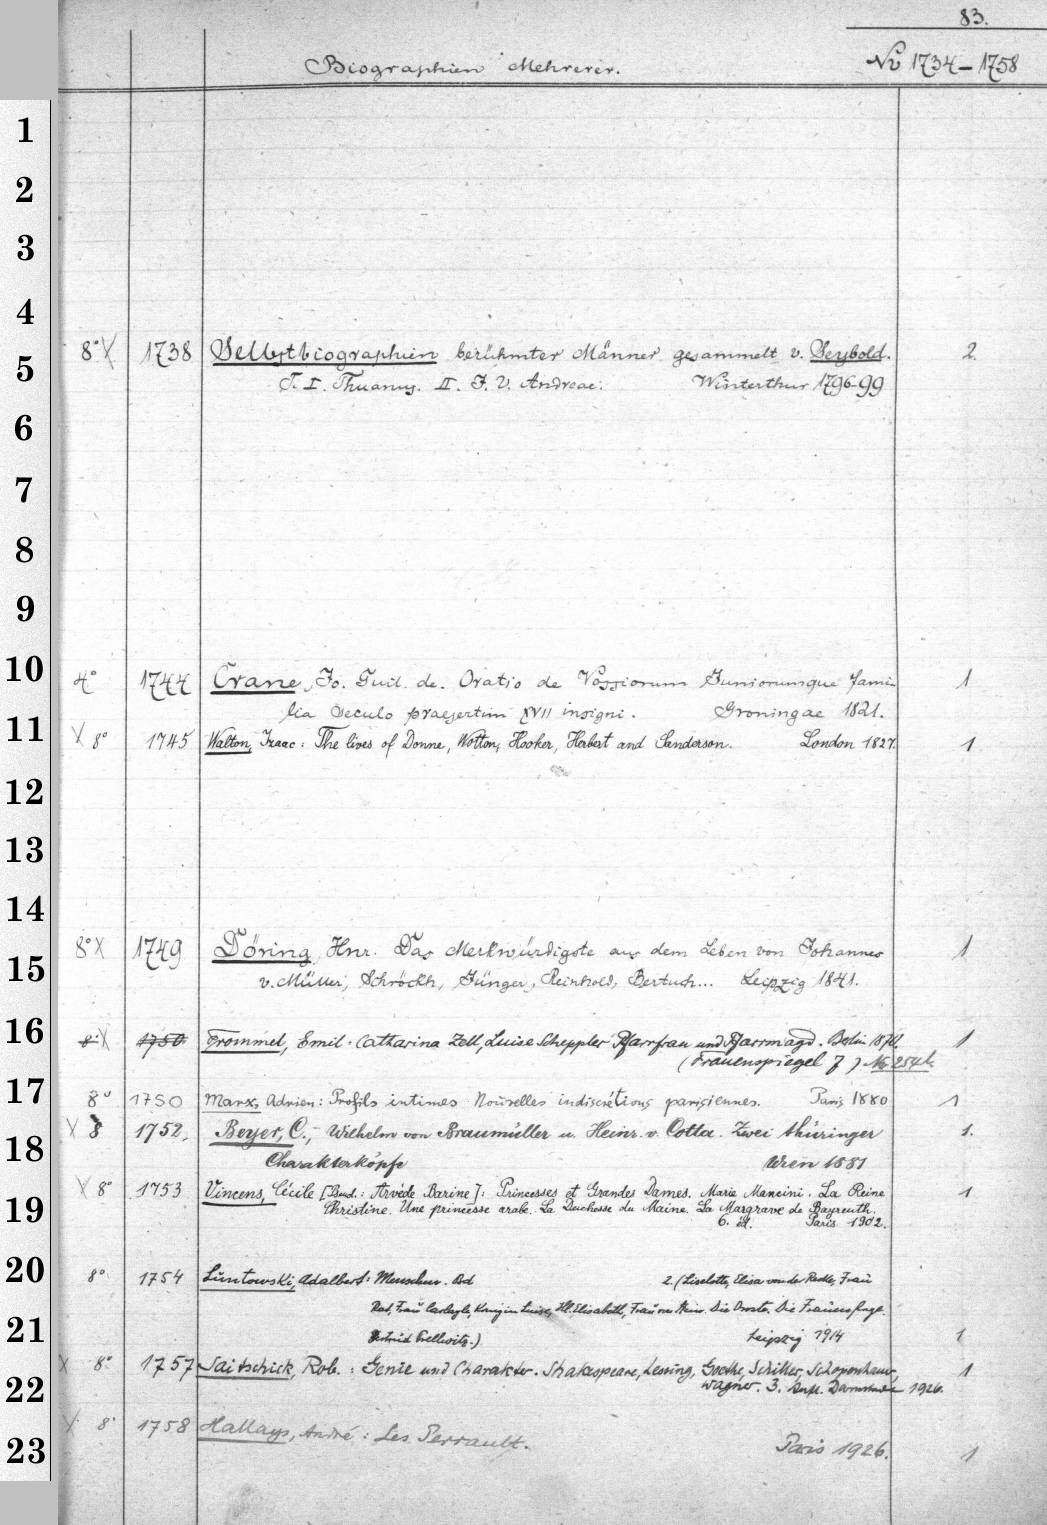 83.
Biographien Mehrerer. No 1734-1758
8° X 1738 Selbstbiographien berühmter Männer gesammelt v. Seybold. 2.
T. I. Thuanus. II. J. V. Andreae. Winterthur 1796-99
4° 1744 Crane, Jo. Guil. de. Oratio de Vossiorum Juniorumque fami- 1
lia seculo praesertim XVII insigni. Groningae 1821.
X 8° 1745 Walton, Izaac: The lives of Donne, Wotton, Hooker, Herbert and Sanderson. London 1827. 1
8° X 1749 Döring, Hnr. Das Merkwürdigste aus dem Leben von Johannes 1
v. Müller, Schröckh, Jünger, Reinhold, Bertuch... Leipzig 1841.
8° X 1750 Frommel, Emil. Catharina Zell, Luise Scheppler Pfarrfrau und Pfarrmagd. Berlin 1
(Frauenspiegel 7)
8° 1750 Marx, Adrien: Profils intimes Nouvelles indiscrétions parisiennes. Paris 1880 1
X 8 1752. Beyer, C., Wilhelm von Braumüller u. Heinr. v. Cotta. Zwei thüringer 1.
Charakterköpfe Wien 1881
X 8° 1753 Vincens, Cécile [Pseud.: Arvède Barine]: Princesses et Grandes Dames. Marie Mancini. La Reine 1
Christine. Une princesse arabe. La Duchesse du Maine. La Margrave de Bayreuth.
6. éd. Paris 1902.
8° 1754 Luntowski, Adalbert: Menschen. Bd 2. (Liselotte, Elisa von der Recke, Frau
Rat, Frau Carlyle, Königin Luise, Hl. Elisabeth, Frau von Stein. Die Droste. Die Frauenfrage.
Prellwitz.) Leipzig 1914 1
X 8° 1757 Saitschick, Rob.: Genie und Charakter. Shakespeare, Lessing, Goethe, Schiller, Schopenhauer, 1
Wagner. 3. Aufl. Darmstadt 1926.
X 8° 1758 Hallays, André: Les Perrault. Paris 1926. 1
1
2
3
4
5
6
7
8
9
10
11
12
13
14
15
16
17
18
19
20
21
22
23